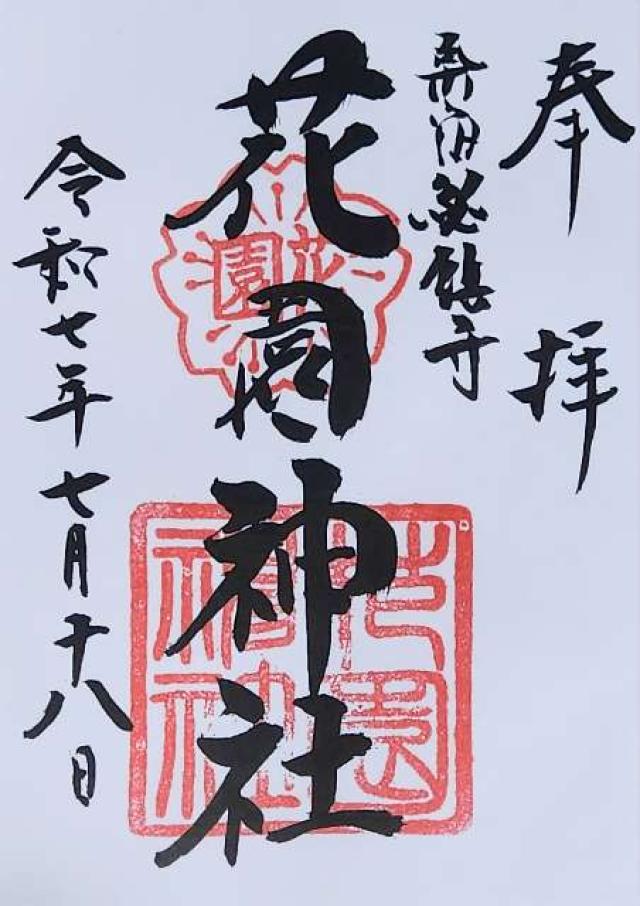 奉拝
新宿総鎮守
花園神社
花園
花園神社
令和七年七月十八日